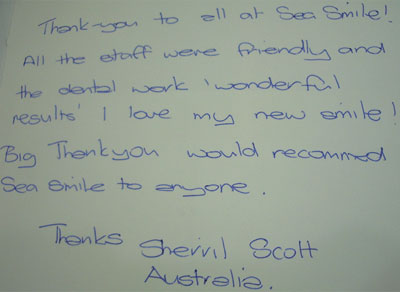 Thank-you to all at Sea Smile!
All the staff were friendly and
the dental work 'wonderful
results' I love my new smile!
Big Thankyou would recommed
Sea Smile to anyone.
Thanks Sherril Scott
Australia.